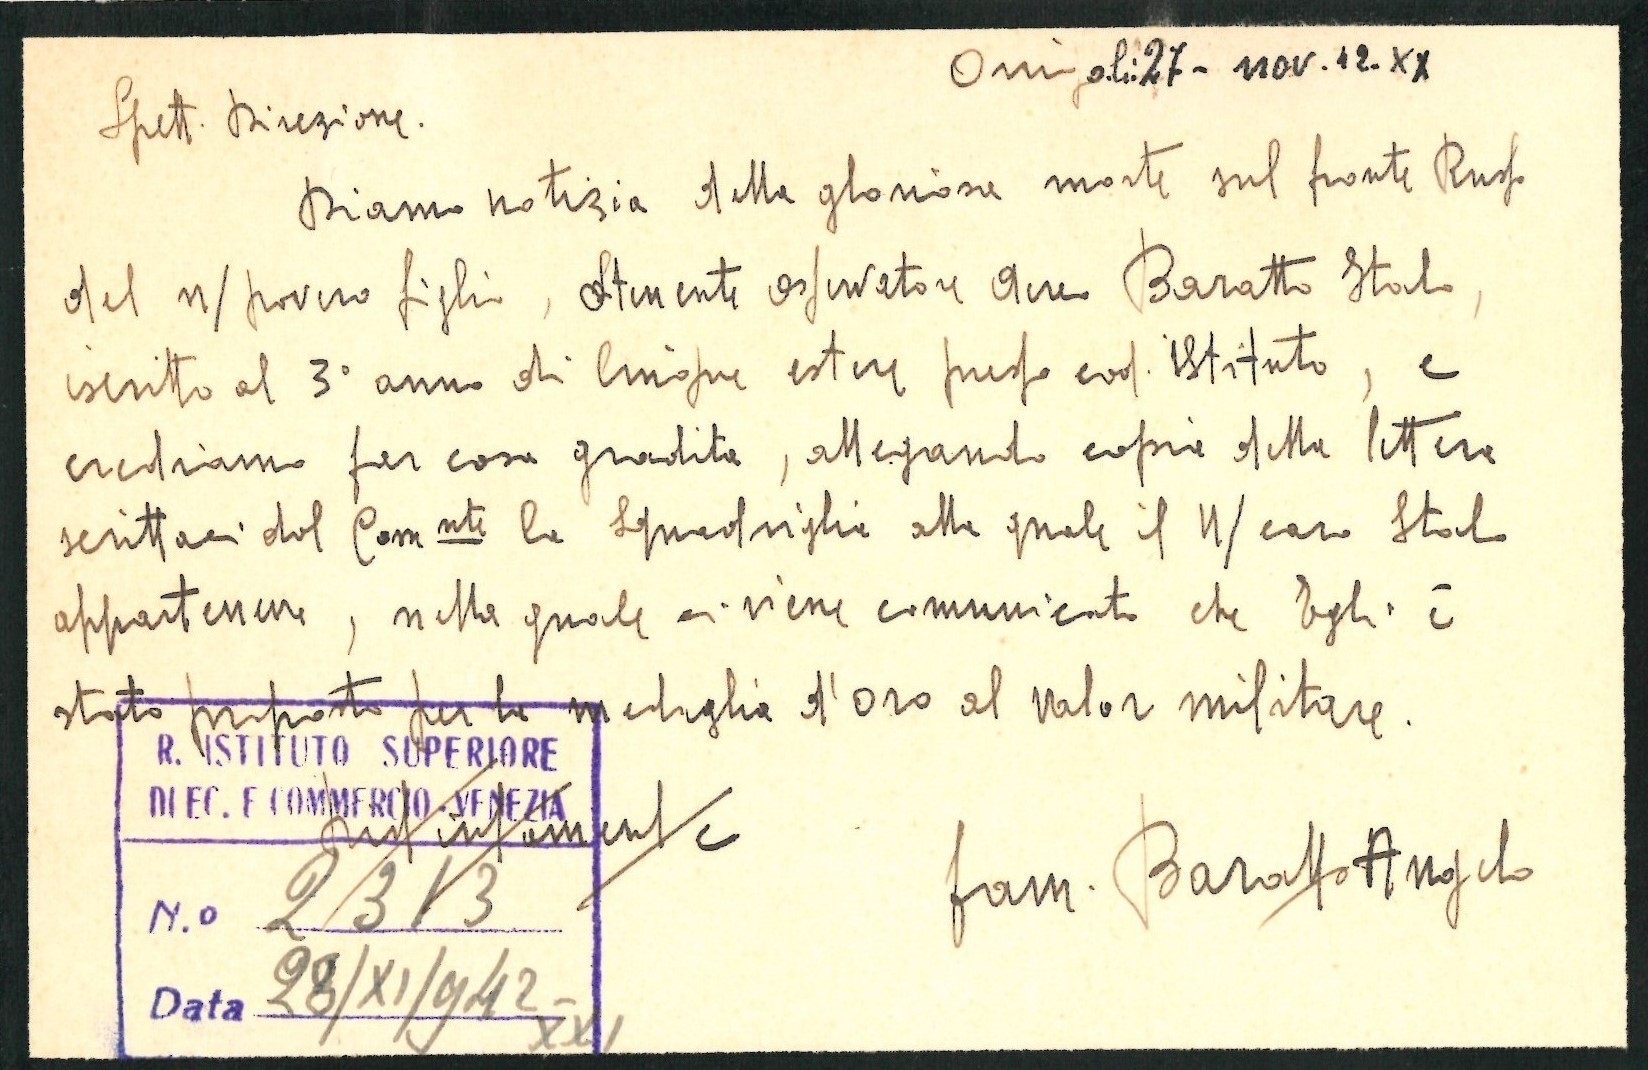 Ormigoli: 27 - nov. 42. XX
Spett. Direzione.
Diamo notizia della gloriosa morte sul fronte Russo
del n/ povero figlio, Stenente osservatore aereo Baratto Italo,
iscritto al 3° anno di lingue estere presso cod. Istituto, e
crediamo far cosa gradita, allegando copia della lettera
scrittaci dal Comnte la Squadriglia alla quale il N/ caro Italo
apparteneva, nella quale ci viene comunicato che Egli è
stato proposto per la medaglia d'oro al valor militare.
Distintamente
fam. Baratto Angelo
R. ISTITUTO SUPERIORE
DI EC. E COMMERCIO - VENEZIA
N.o 2313
Data 28/XI/942-
XXI